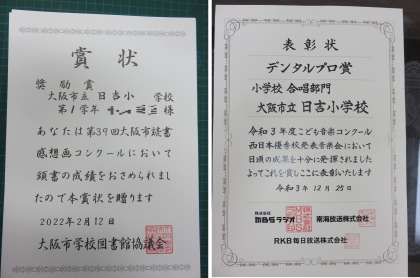 賞状
奨励賞
大阪市立 日吉小 学校
第1学年 様
あなたは第39回大阪市読書
感想画コンクールにおいて
頭書の成績をおさめられまし
たので本賞状を贈ります
2022年2月12日
大阪市学校図書館協議会
表彰状
デンタルプロ賞
小学校 合唱部門
大阪市立 日吉小学校
令和3年度こども音楽コンクール
西日本優秀校発表音楽会において
日頃の成果を十分に発揮されました
よってこれを賞しここに表彰いたします
令和3年12月25日
株式会社 MBSラジオ 南海放送株式会社
RKB毎日放送株式会社